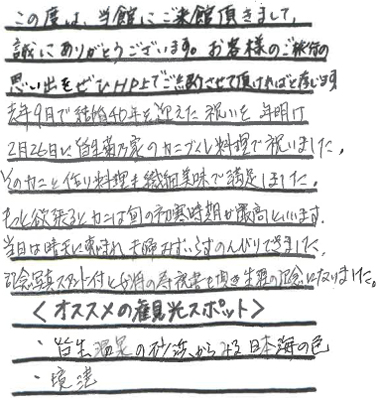 この度は、当館にご来館頂きまして、
誠にありがとうございます。お客様のご旅行の
思い出をぜひHP上でご紹介させて頂ければと存じます
去年9月で結婚40年を迎えた祝いを年明け
2月26日に皆生菊乃家のカニづくし料理で祝いました。
そのカニと作り料理も繊細美味で満足しました。
もっと欲張るとカニは旬の初寒時期が最高といいます.
当日は晴天に恵まれ夫婦みずいらずのんびりできました.
記念写真スタンド付と女将の寿祝書も頂き生涯の記念になりました。
<オススメの観光スポット>
・皆生温泉の砂浜からみる日本海の色
・境港